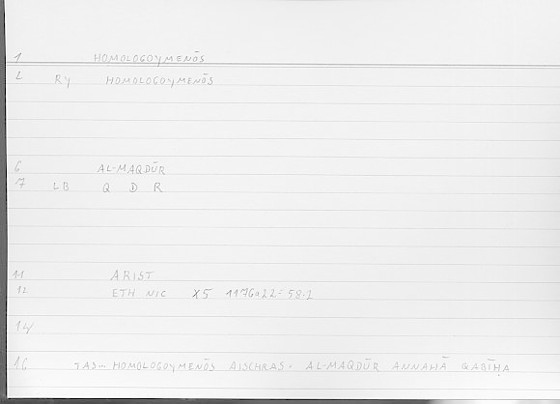 1 HOMOLOGOYMENŌS
2 RY HOMOLOGOYMENŌS
6 AL-MAQDŪR
7 LB Q D R
11 ARIST
12 ETH NIC X5 1176a22=58.2
14
16 TAS– HOMOLOGOYMENŌS AISCHRAS. AL-MAQDŪR ANNAHĀ QABĪḤA